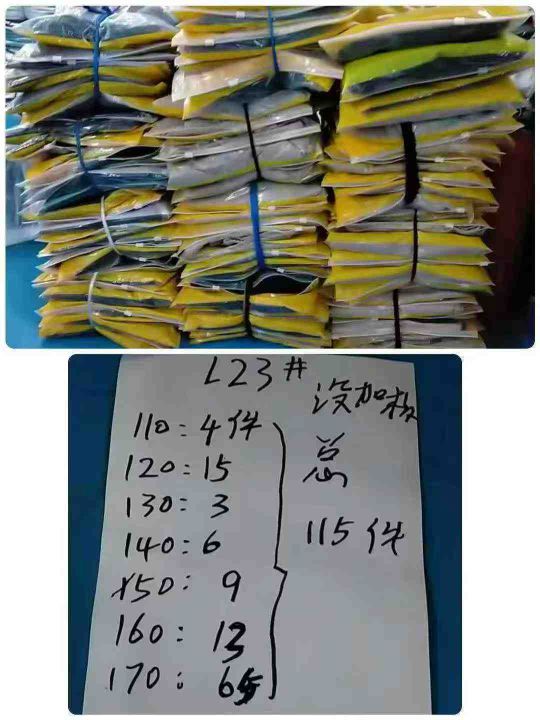 L23#
没加
110:4件
120:15
130:3
140:6
150:9
160:13
170:65
总
115件